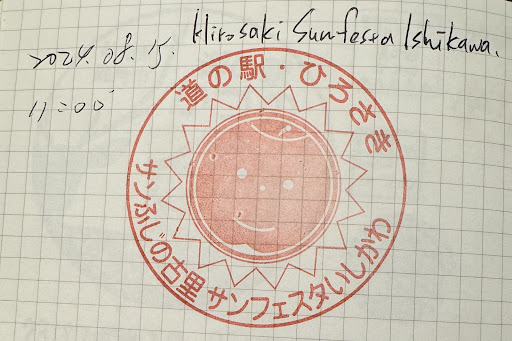 Hirosaki Sunfesta Ishikawa.
2024.08.15.
11:00
道の駅・ひろさき
サンふじの古里 サンフェスタいしかわ